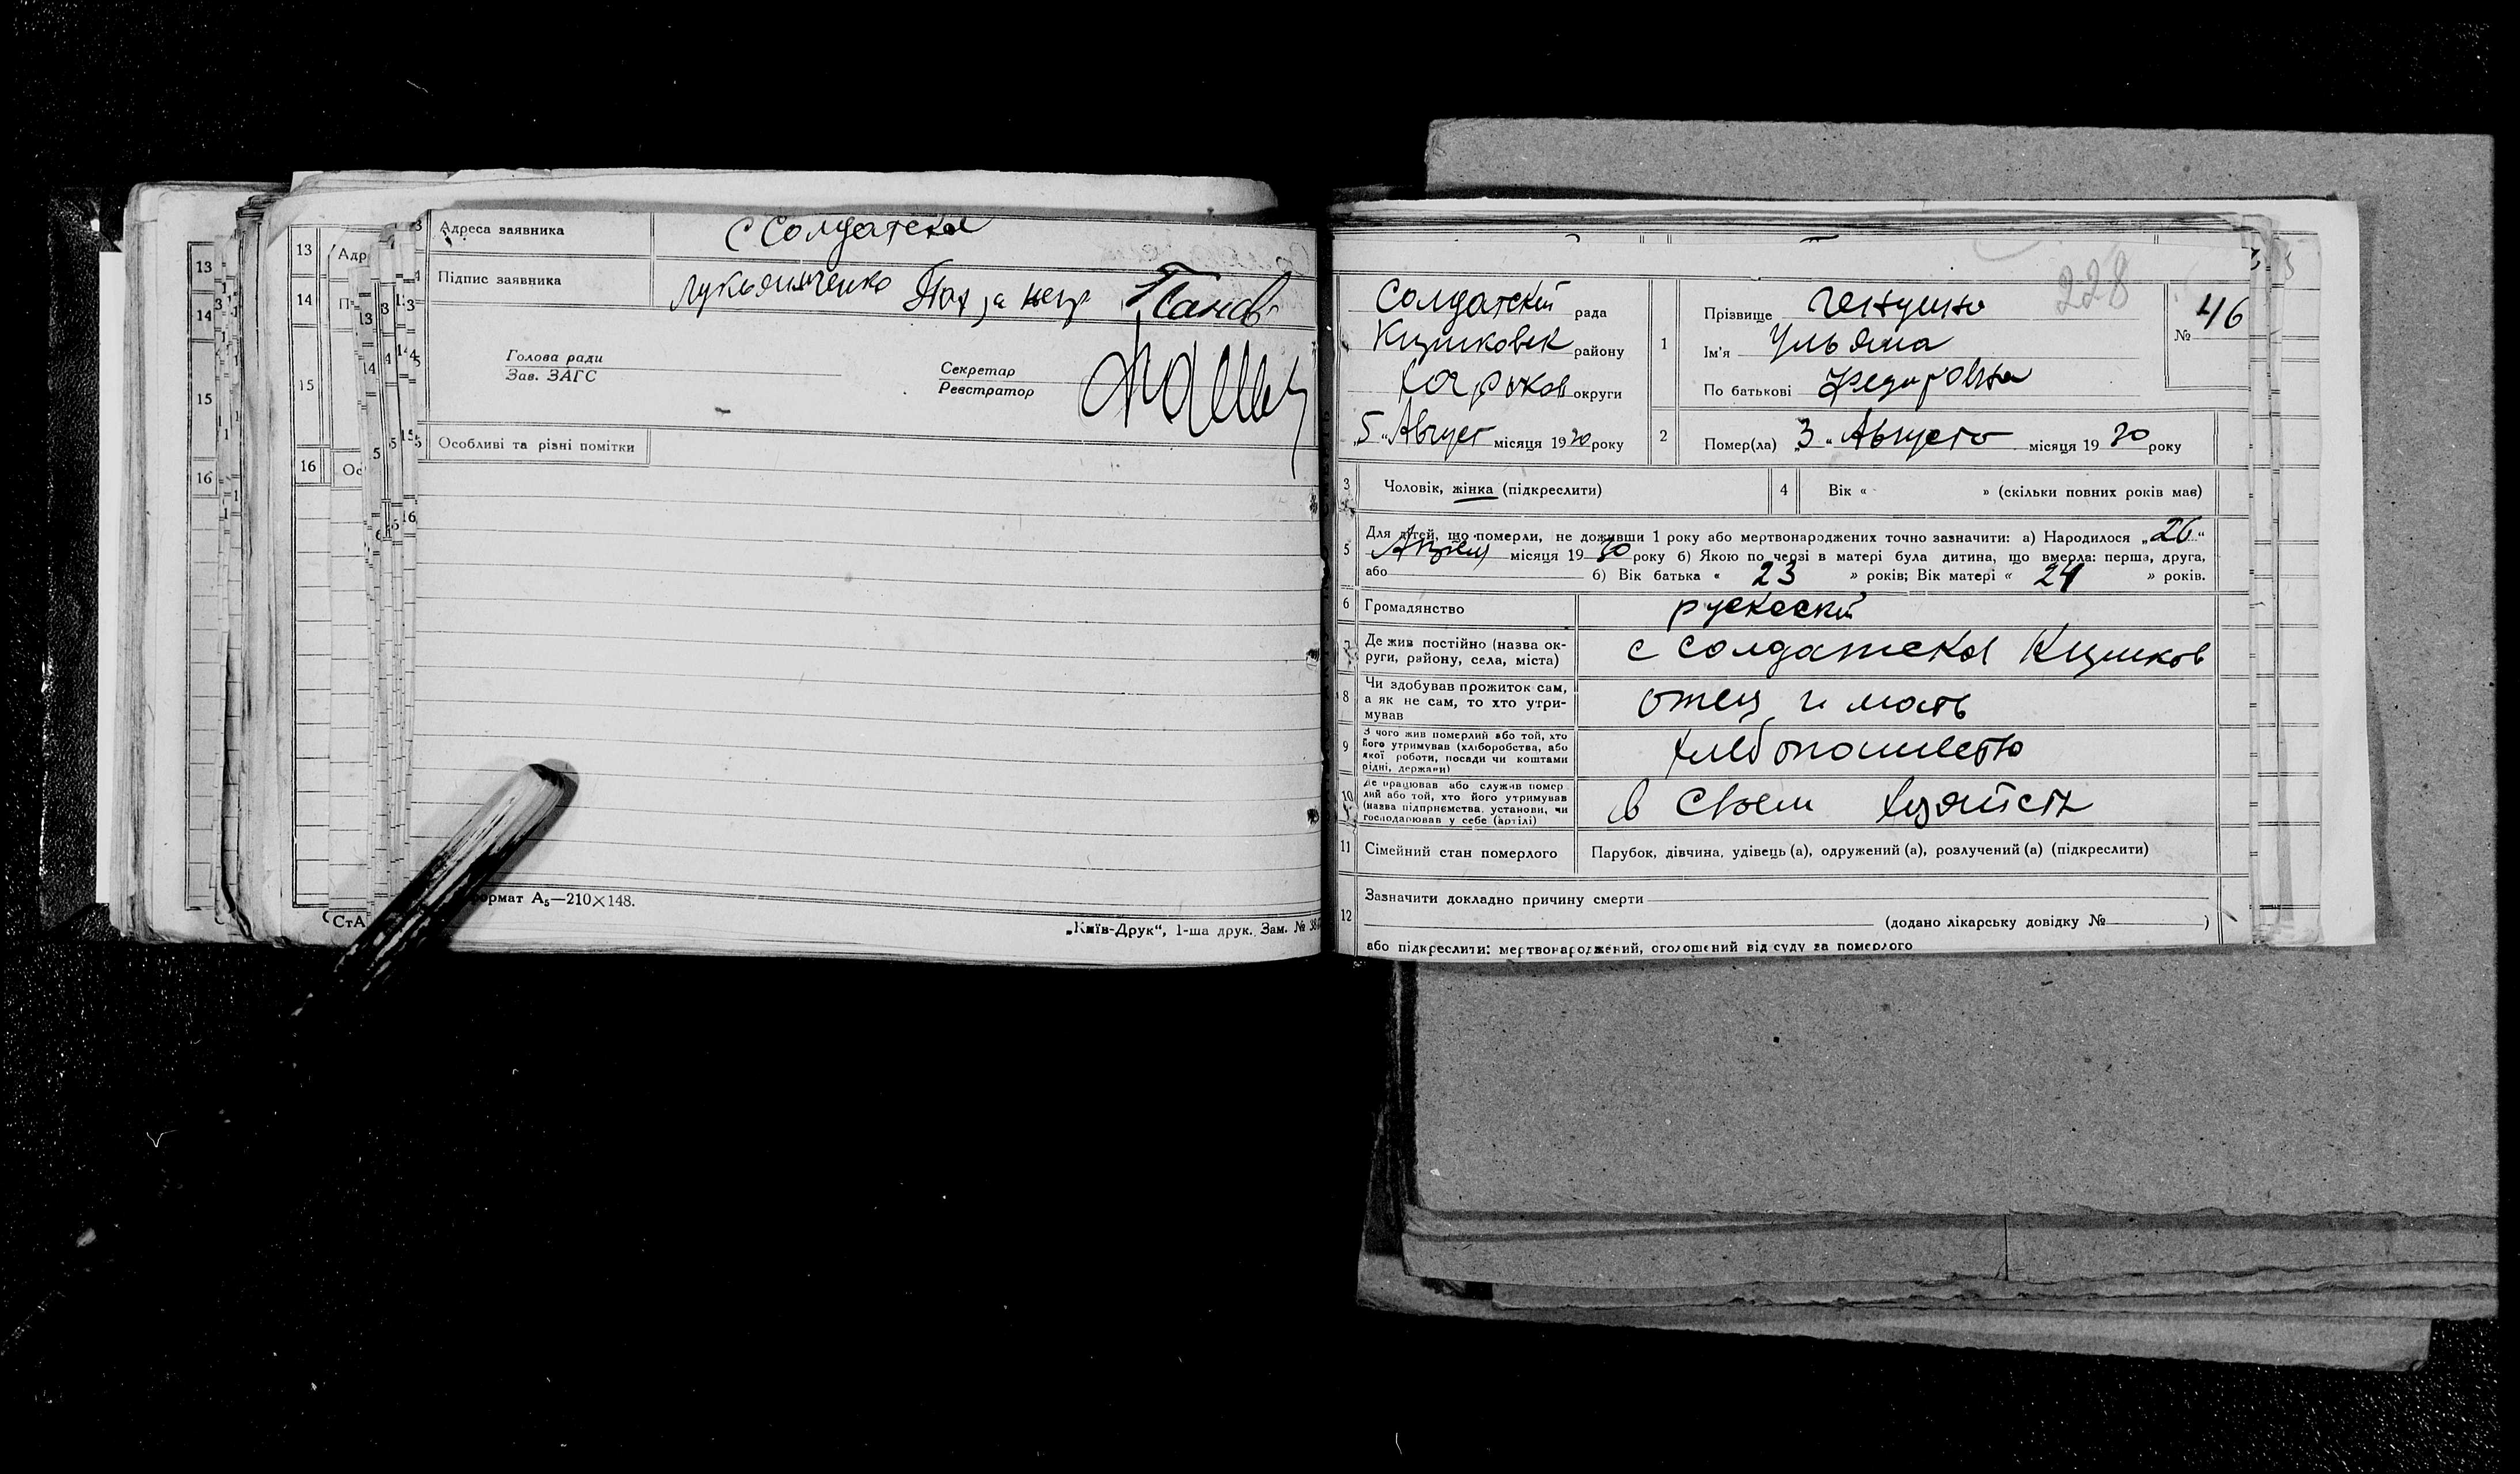 Адреса заявника с Солдатска
Підпис заявника Лукьянченко за негр Панов
Голова ради
Зав. ЗАГС
Секретар
Реєстратор
Особливі та різні помітки
формат А5—210×148.
„Київ-Друк“, 1-ша друк. Зам. №
228
Солдатский рада
района
Харьков округи
„5“ Август місяця 1930 року
1
Прізвище
Ім'я Ульяна
По батькові Федоровна
№ 46
2 Помер(ла) „3“ Августа місяця 1930 року
3 Чоловік, жінка (підкреслити)
4 Вік « » (скільки повних років мав)
5 Для дітей, що померли, не доживши 1 року або мертвонароджених точно зазначити: а) Народилося „26“
місяця 1930 року б) Якою по черзі в матері була дитина, що вмерла: перша, друга,
або б) Вік батька « 23 » років; Вік матері « 24 » років.
6 Громадянство русский
7 Де жив постійно (назва округи, району, села, міста) с Солдатска
8 Чи здобував прожиток сам, а як не сам, то хто утримував отец и мать
9 З чого жив померлий або той, хто його утримував (хліборобства, або якої роботи, посади чи коштами рідні, держави)
10 Де працював або служив померлий або той, хто його утримував (назва підприємства, установи, чи господарював у себе (артілі) в своем
11 Сімейний стан померлого Парубок, дівчина, удівець (а), одружений (а), розлучений (а) (підкреслити)
12 Зазначити докладно причину смерти
(додано лікарську довідку № )
або підкреслити: мертвонароджений, оголошений від суду за померлого